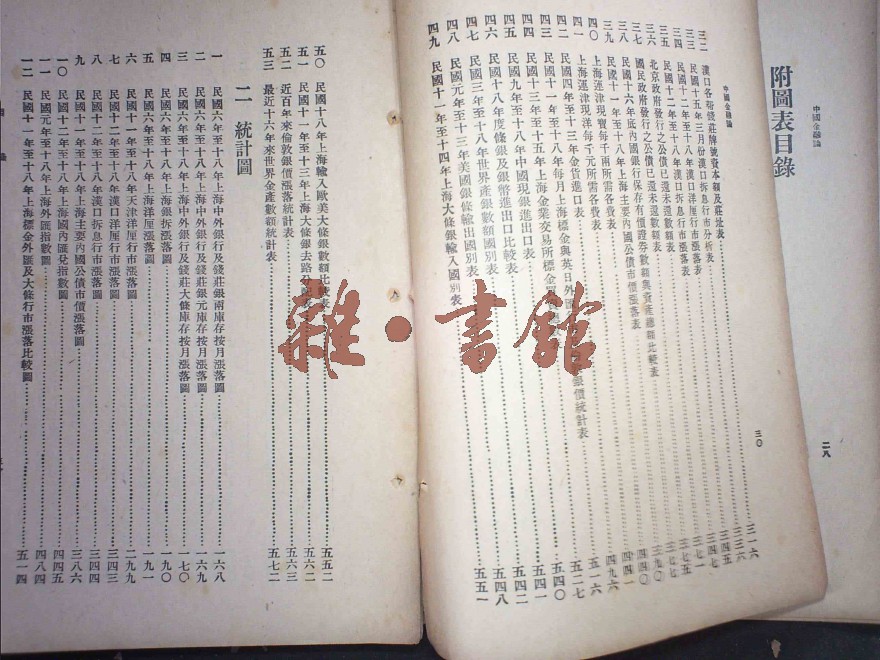 中國金融論
附圖表目錄
二八
中國金融論
三二 漢口各帮錢莊牌號資本額及莊址表 三一六
三三 民國十五年三月份漢口拆息行市分析表 三三六
三四 民國十二年至十八年漢口洋厘行市漲落表 三四五
三五 民國十二年至十八年漢口拆息行市漲落表 三四七
三六 北京政府發行之公債已還未還數額表
三七 國民政府發行之公債已還未還數額表
三八 民國十六年底內國銀行保存有價證券數額與資產總額比較表
三九 民國十一年至十八年上海主要內國公債市價漲落表
四〇 上海運津現寶每千兩所需各費表
四一 上海運津現洋每千元所需各費表
四二 民國四年至十三年金貨進口表
四三 民國十一年至十八年每月上海標金與英日外匯 銀價統計表
四四 民國十三年至十五年上海金業交易所標金
四五 民國九年至十八年中國現銀進出口表 五四一
四六 民國十八年度條銀及銀幣進出口比較表 五四二
四七 民國三年至十八年世界產銀數額國別表
四八 民國元年至十三年美國銀條輸出國別表 五四八
四九 民國十一年至十四年上海大條銀輸入國別表 五五一
三〇
五〇 民國十八年上海輸入歐美大條銀數額比較表 五五二
五一 民國十一年至十三年上海大條銀去路分配表 五六二
五二 近百年來倫敦銀價漲落統計表 五六三
五三 最近十六年來世界金產數額統計表 五七二
二 統計圖
一 民國六年至十八年上海中外銀行及錢莊銀兩庫存按月漲落圖 一六八
二 民國六年至十八年上海中外銀行及錢莊銀元庫存按月漲落圖 一六九
三 民國六年至十八年上海中外銀行及錢莊大條庫存按月漲落圖 一七〇
四 民國六年至十八年上海銀拆漲落圖 一九〇
五 民國六年至十八年上海洋厘漲落圖 一九一
六 民國十一年至十八年天津洋厘行市漲落圖 二九九
七 民國十二年至十八年漢口洋厘行市漲落圖 三四三
八 民國十二年至十八年漢口拆息行市漲落圖 三四四
九 民國十一年至十八年上海主要內國公債市價漲落圖 三八六
一〇 民國十二年至十八年上海國內匯兌指數圖 四四五
一一 民國元年至十八年上海外匯指數圖 四八四
一二 民國十一年至十八年上海標金外匯及大條行市漲落比較圖 五一四
雜·書館